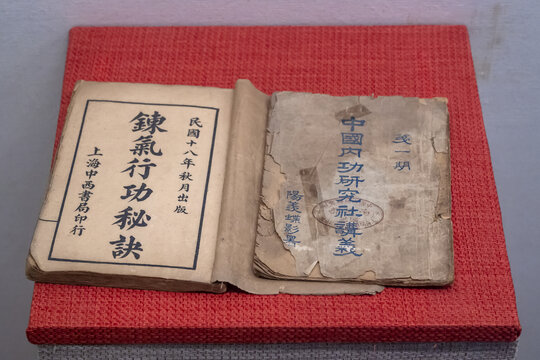 民國十八年秋月出版
鍊氣行功秘訣
上海中西書局印行
中國內功研究社講義
陽羨蝶影署